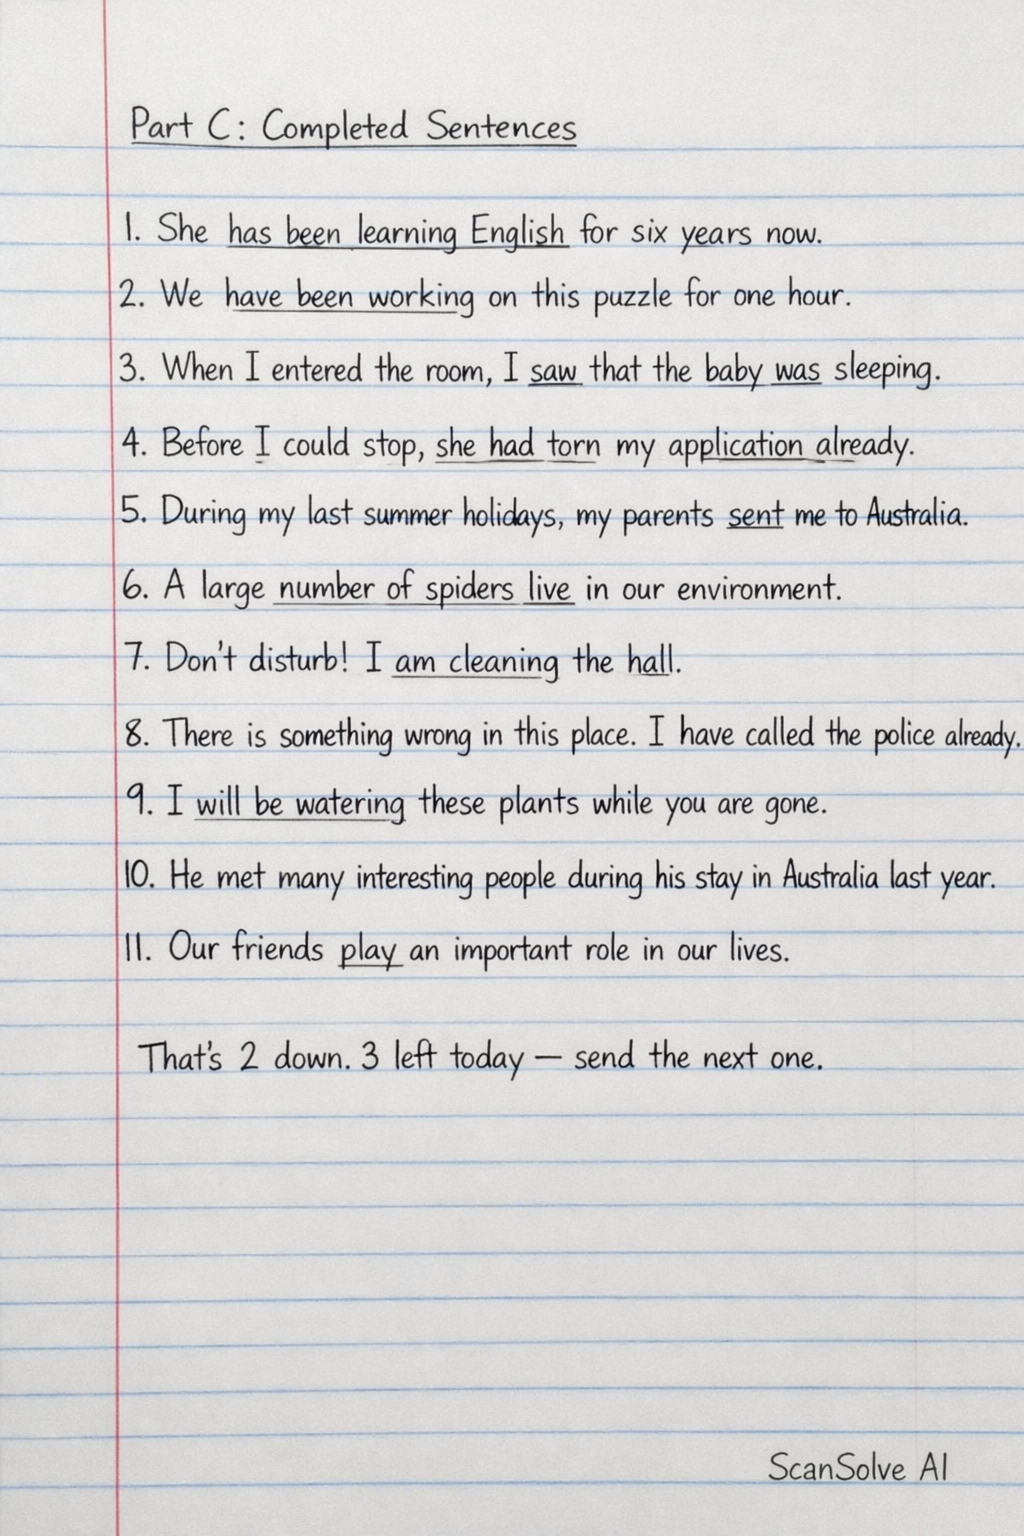 Part C: Completed Sentences
1. She has been learning English for six years now.
2. We have been working on this puzzle for one hour.
3. When I entered the room, I saw that the baby was sleeping.
4. Before I could stop, she had torn my application already.
5. During my last summer holidays, my parents sent me to Australia.
6. A large number of spiders live in our environment.
7. Don't disturb! I am cleaning the hall.
8. There is something wrong in this place. I have called the police already.
9. I will be watering these plants while you are gone.
10. He met many interesting people during his stay in Australia last year.
11. Our friends play an important role in our lives.
That's 2 down. 3 left today — send the next one.
ScanSolve AI